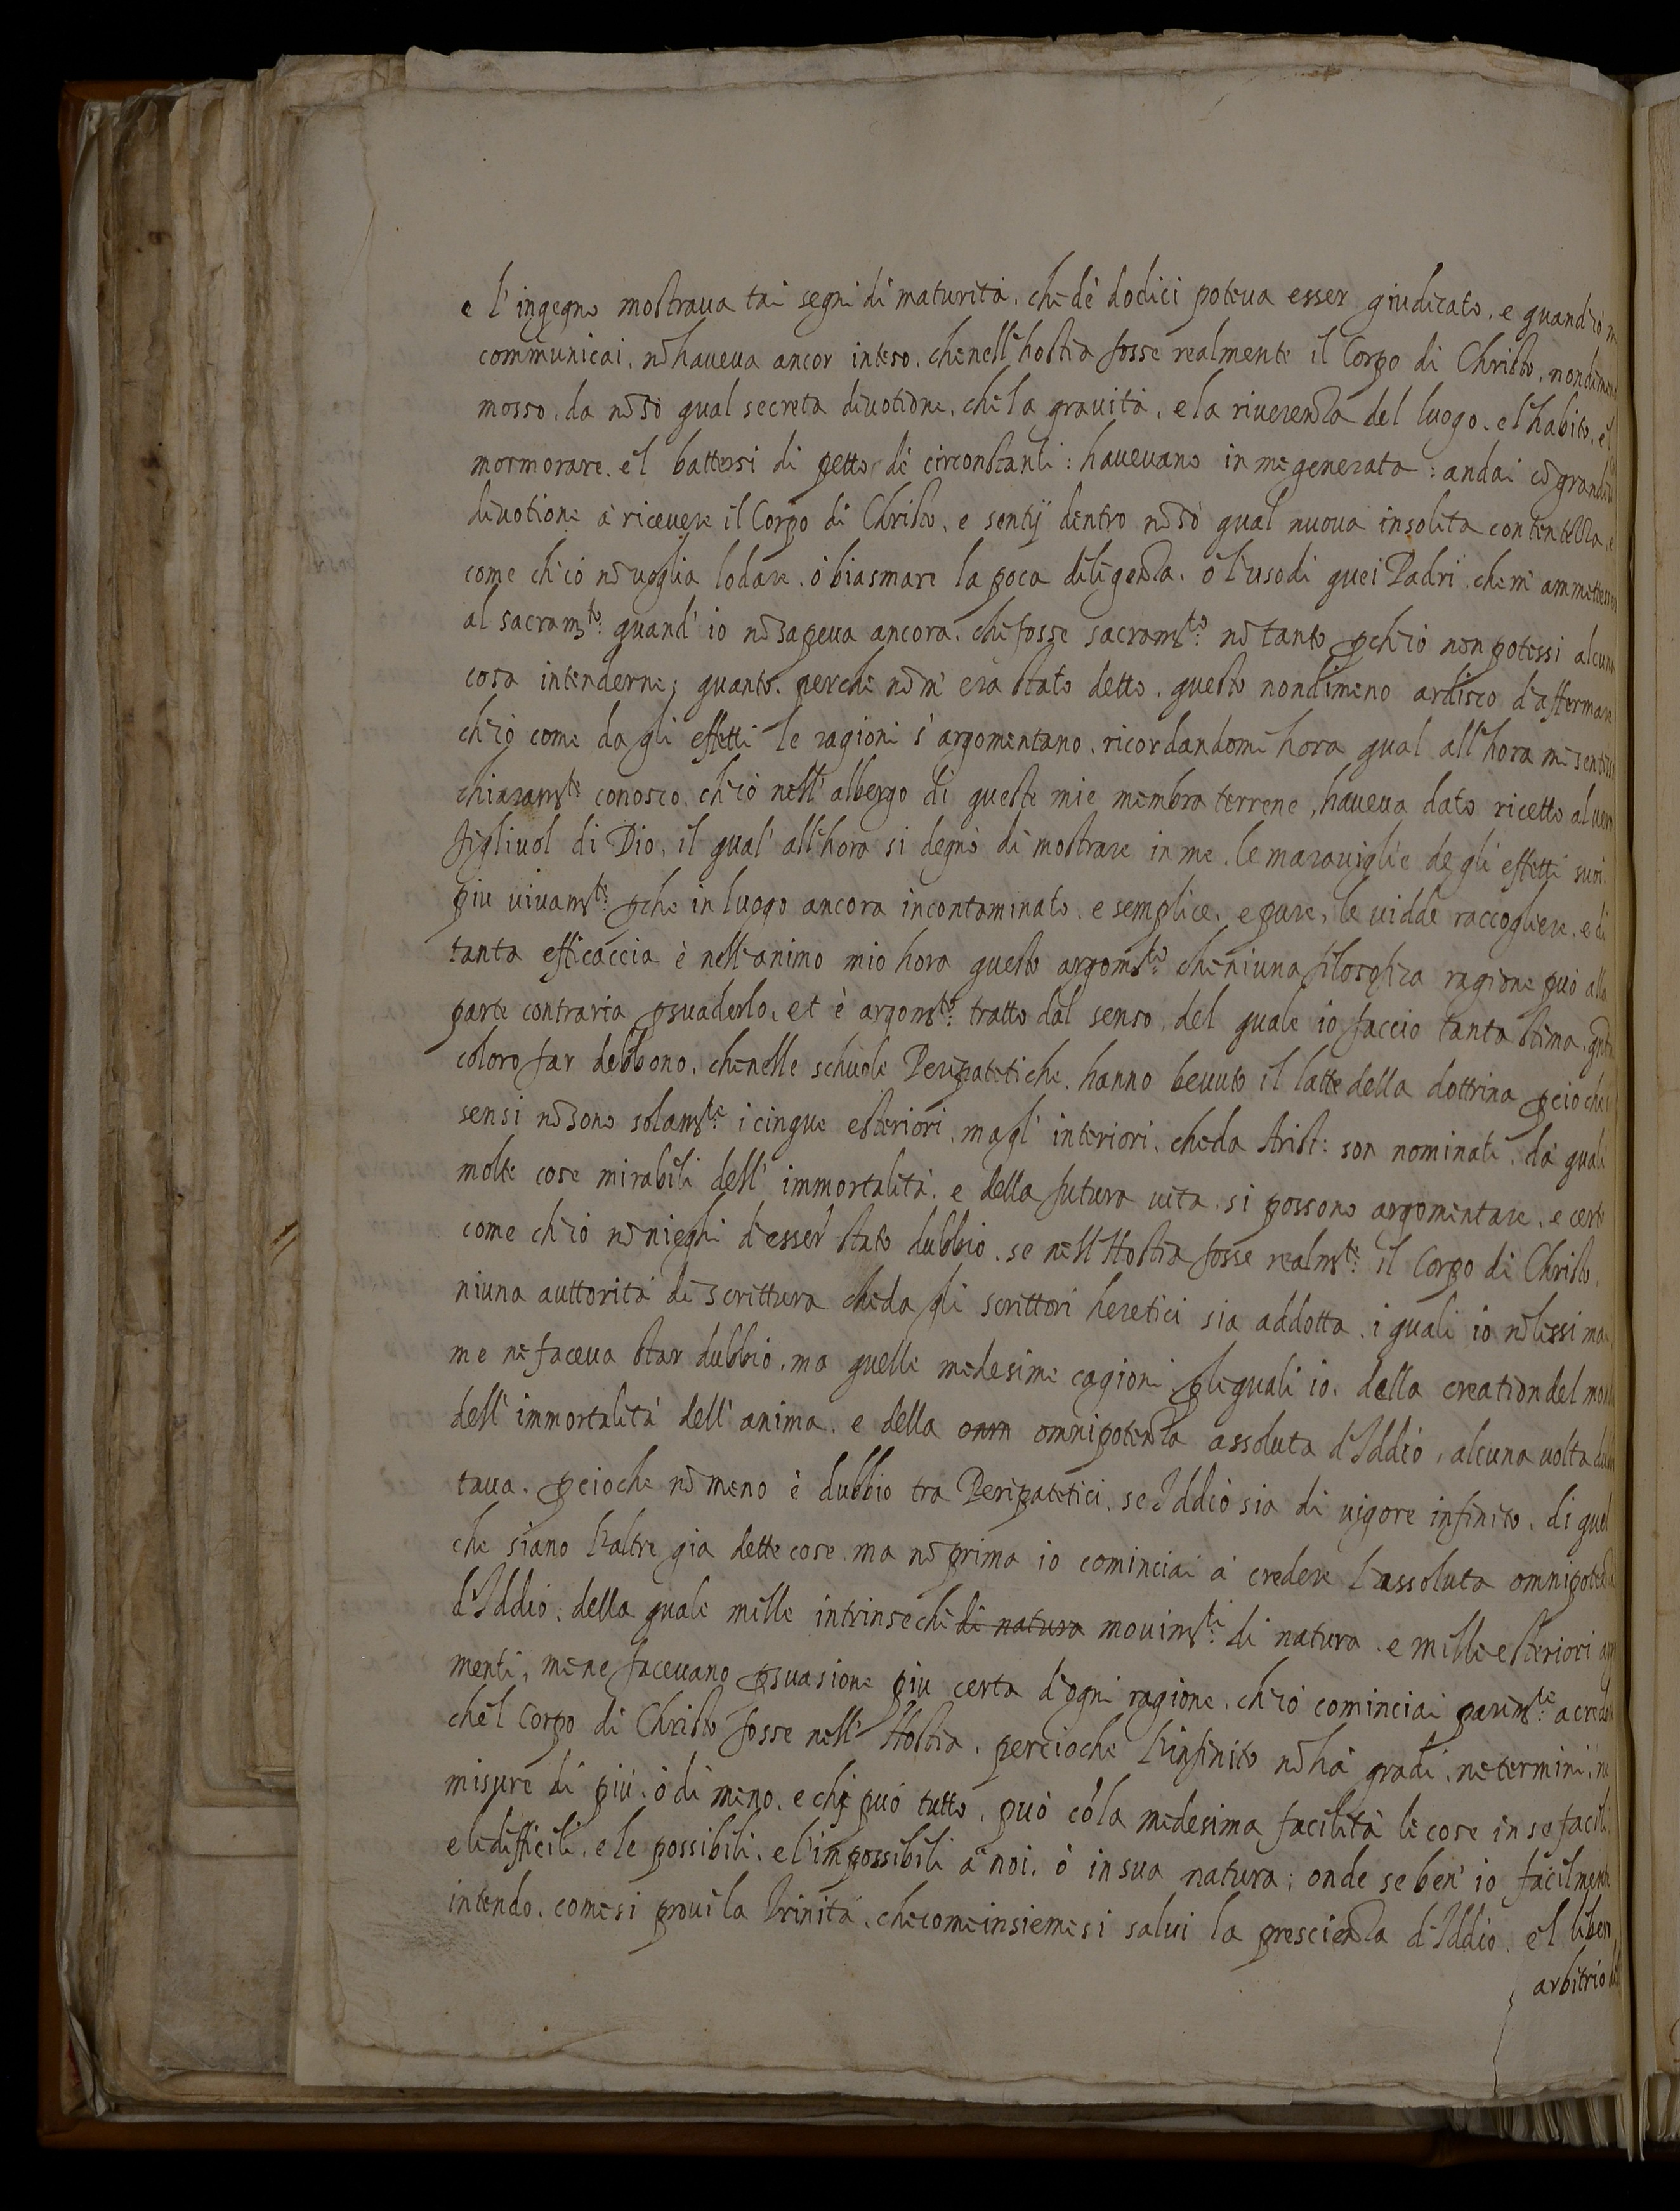 e l'ingegno mostraua tai segni di maturità, che de dodici poteua esser giudicato, e quand'io
communicai, nõ haueua ancor inteso, che nell'hostia fosse realmente il Corpo di Christo, nondimeno
mosso, da nõ sò qual secreta diuotione, che la grauità, e la riuerenza del luogo, e l'habito, e'l
mormorare, e'l battersi di petto, de circonstanti: haueuano in me generata: andai cõ grandiss
diuotione à riceuere il Corpo di Christo, e sentij dentro nõ sò qual nuoua insolita contentezza, e
come ch'io nõ uoglia lodare, ò biasmare la poca diligenza, ò l'uso di quei Padri, che m'ammetteuano
al sacram.to quand'io nõ sapeua ancora, che fosse sacram.to nõ tanto pch'io non potessi alcuna
cosa intenderne; quanto, perche nõ m'era stato detto, questo nondimeno ardisco d'affermare
ch'io come da gli effetti le ragioni s'argomentano, ricordandomi hora qual all'hora mi sentissi
chiaram.te conosco, ch'io nell'albergo di queste mie membra terrene, haueua dato ricetto al uero
figliuol di Dio, il qual'all'hora si degnò di mostrare in me, le marauiglie de gli effetti suoi.
piu uiuam.te pche in luogo ancora incontaminato, e semplice, e puro, le uidde raccogliere, e di
tanta efficaccia è nell'animo mio hora questo argom.to che niuna filosofica ragione può alla
parte contraria psuaderlo, et è argom.to tratto dal senso, del quale io faccio tanta stima, qnta
coloro far debbono, che nelle schuole Peripatetiche, hanno beuuto il latte della dottrina pcioche i
sensi nõ sono solam.te i cinque esteriori, ma gl'interiori, che da Arist: son nominati, da quali
molte cose mirabili dell'immortalità, e della futura uita, si possono argomentare, e certo
come ch'io nõ nieghi d'esser stato dubbio, se nell'Hostia fosse realm.te il Corpo di Christo,
niuna auttorità di scrittura che da gli scrittori heretici sia addotta, i quali io nõ lessi mai
me ne faceua star dubbio, ma quelle medesime cagioni p le quali io, della creation del mondo
dell'immortalità dell'anima, e della onm omnipotenza assoluta d'Iddio, alcuna uolta dubi
taua, pcioche nõ meno è dubbio tra Peripatetici, se Iddio sia di uigore infinito, di quel
che siano l'altre gia dette cose, ma nõ prima io cominciai à credere l'assoluta omnipotenza
d'Iddio, della quale mille intrinsechi di natura mouim.ti di natura, e mille esteriori argo
menti, me ne faceuano psuasione piu certa d'ogni ragione, ch'io cominciai parim.te a credere
che'l Corpo di Christo fosse nell'Hostia, percioche l'infinito nõ hà gradi, ne termini, ne
misure di più, ò di meno, e chi può tutto, può cõ la medesima facilità le cose in se facili,
e le difficili, e le possibili, e l'impossibili à noi, ò in sua natura; onde se ben'io facilmente
intendo, come si proui la Trinità, che come insieme si salui la prescienza d'Iddio, e'l libero
arbitrio